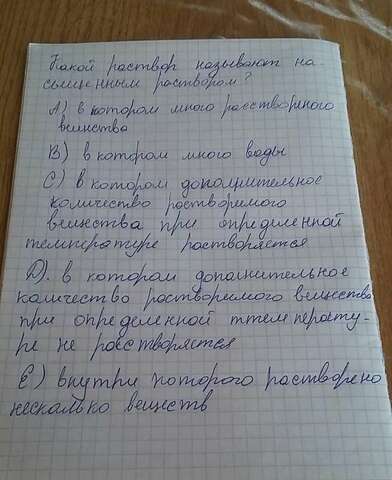 Какой раствор называют на-
сыщенным раствором?
А) в котором много расстворёного
вещества
В) в котором много воды
С) в котором дополнительное
количество растворимого
вещества при определенной
температуре растворяется
D). в котором дополнительное
количество растворимого вещества
при определенной ттемперату-
ре не расстворяется
Е) внутри которого растворено
несколько веществ